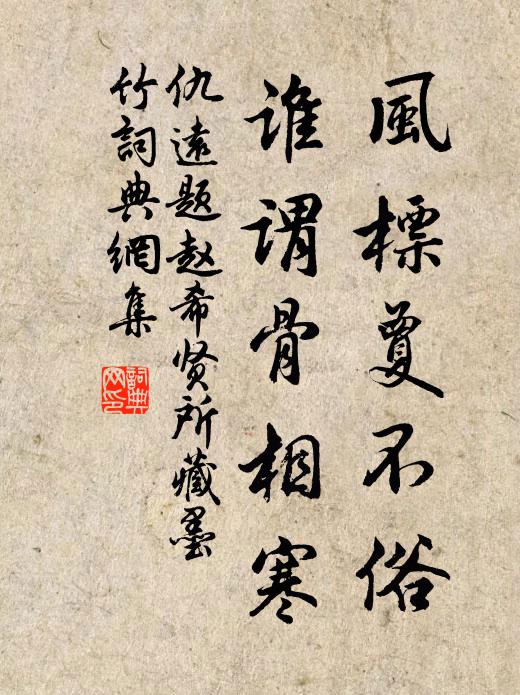 風標夐不俗
誰謂骨相寒
仇遠题赵希贤所藏墨
竹詞典網集
詞典
网印